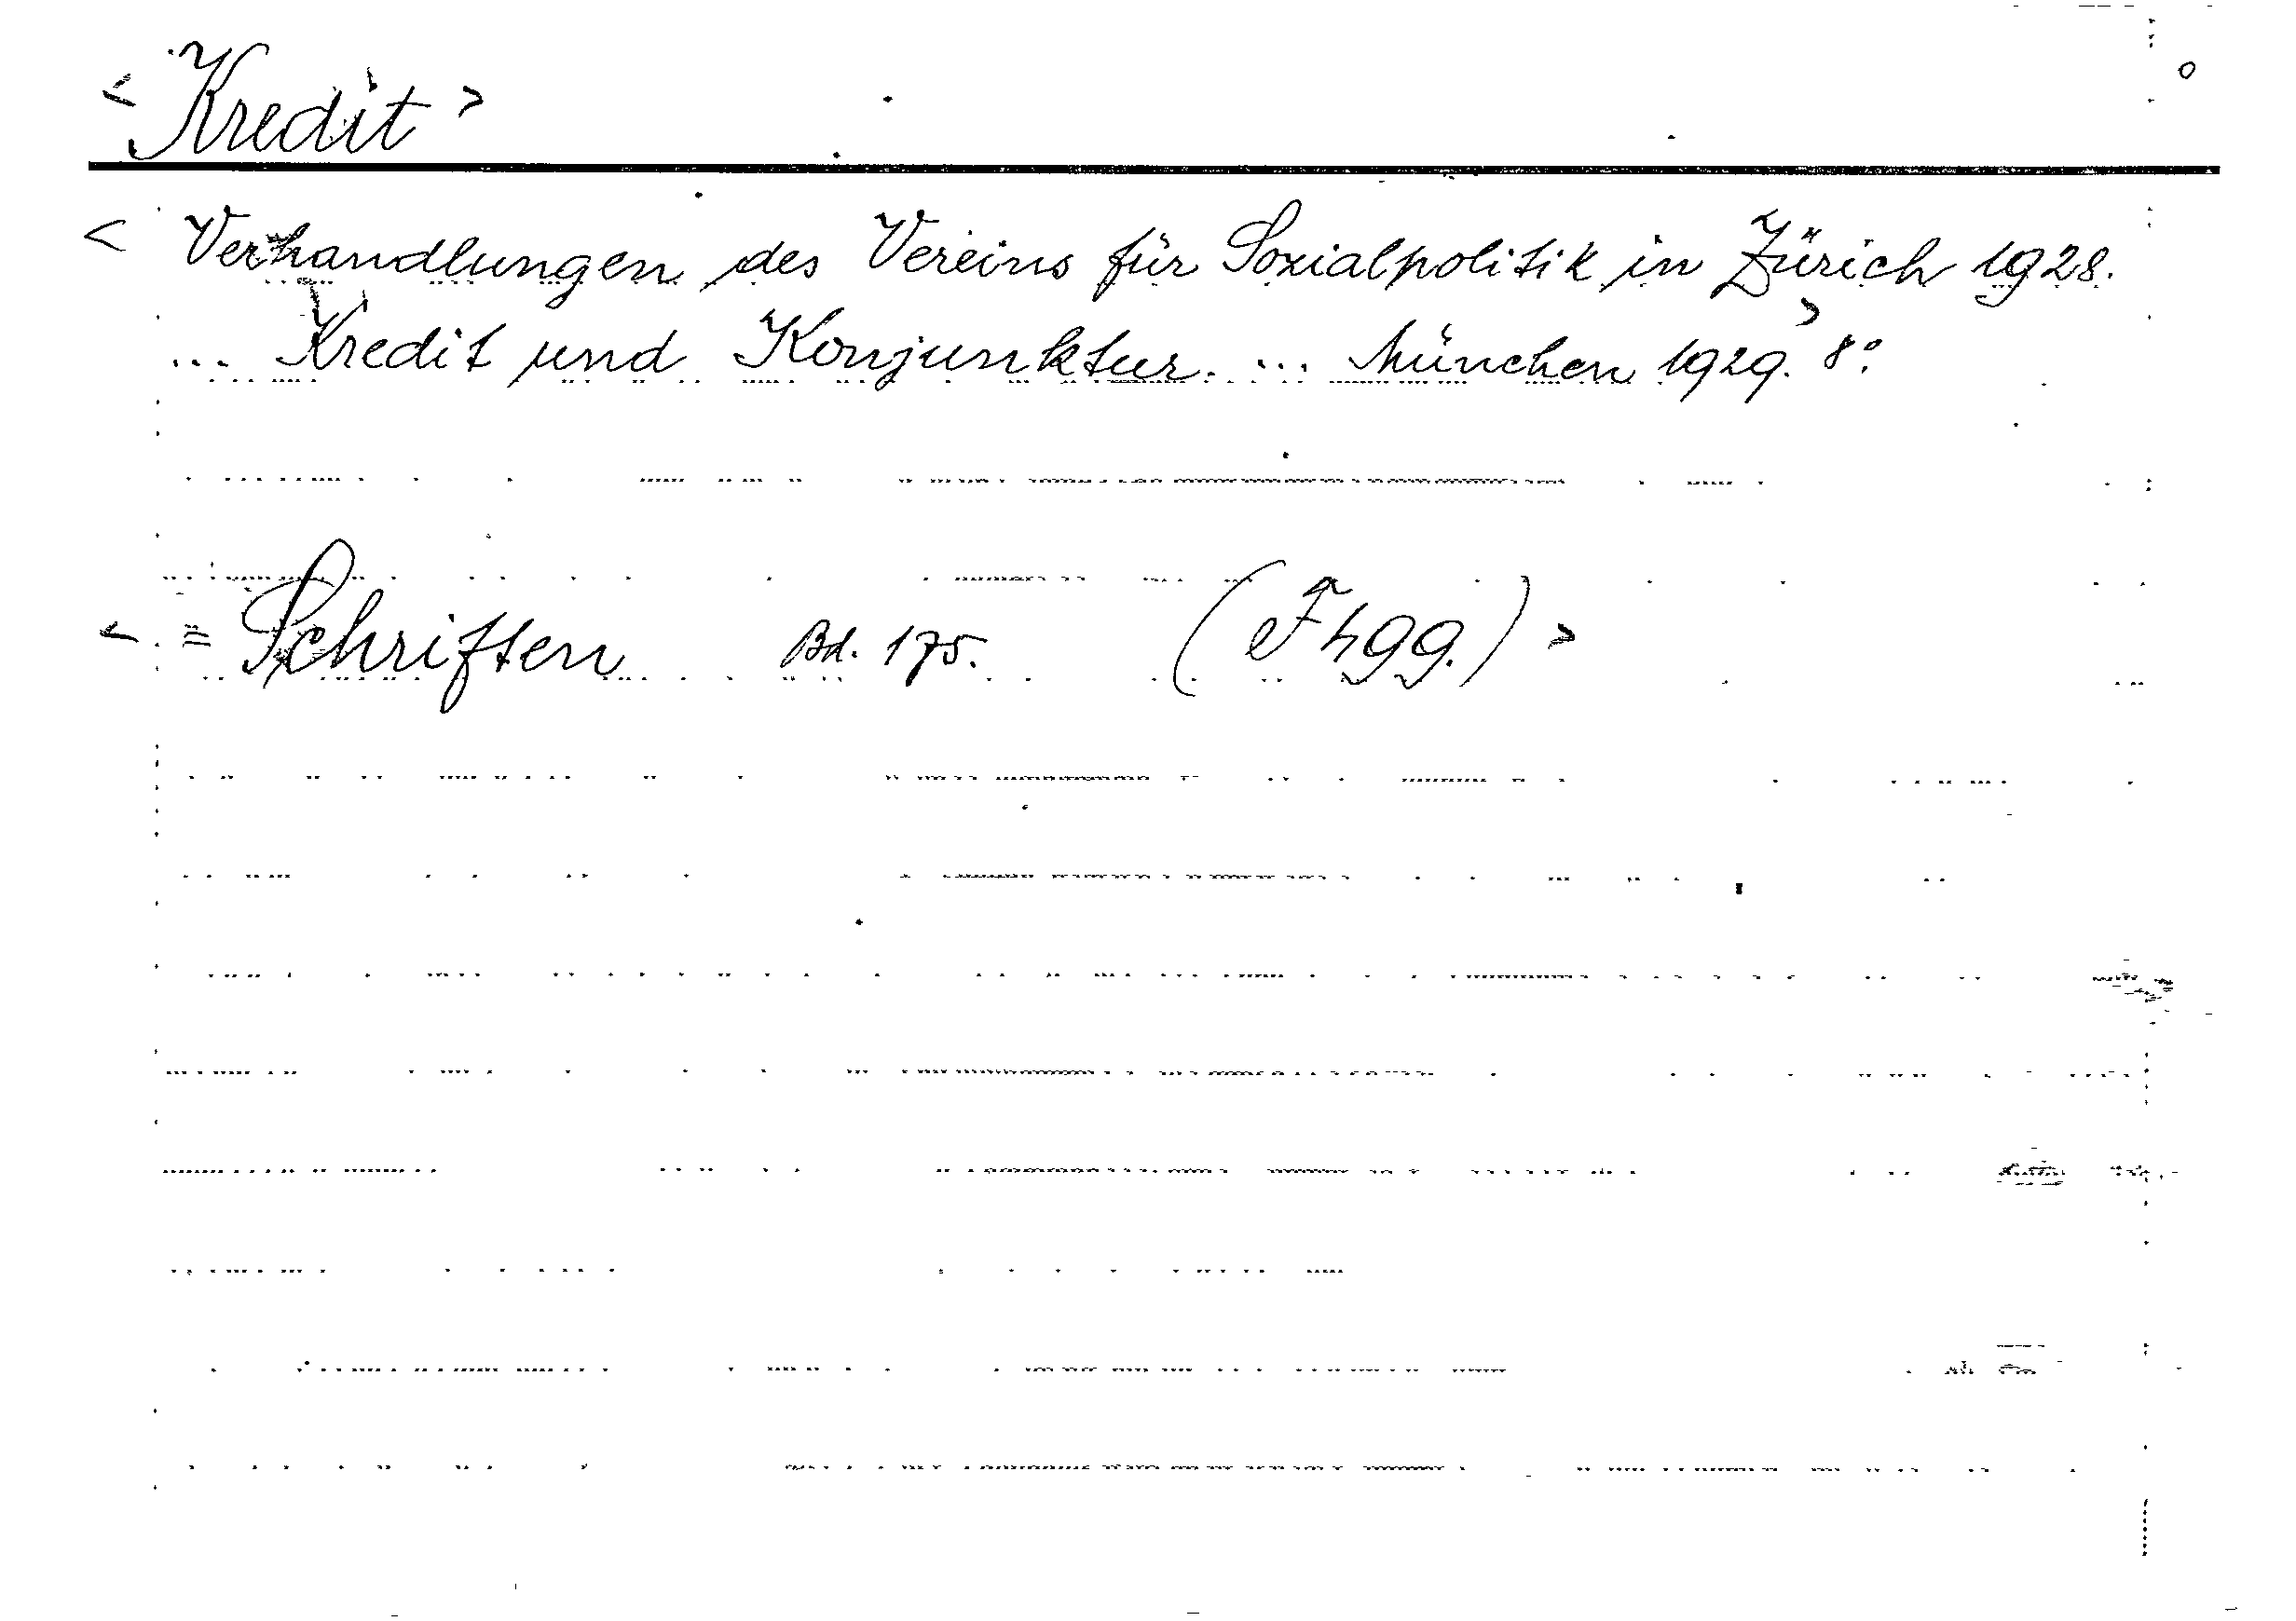 < Kredit >
< Verhandlungen des Vereins für Sozialpolitik in Zürich 1928.
... Kredit und Konjunktur. ... München 1929. > 8°.
< = Schriften Bd. 175. (F499.) >